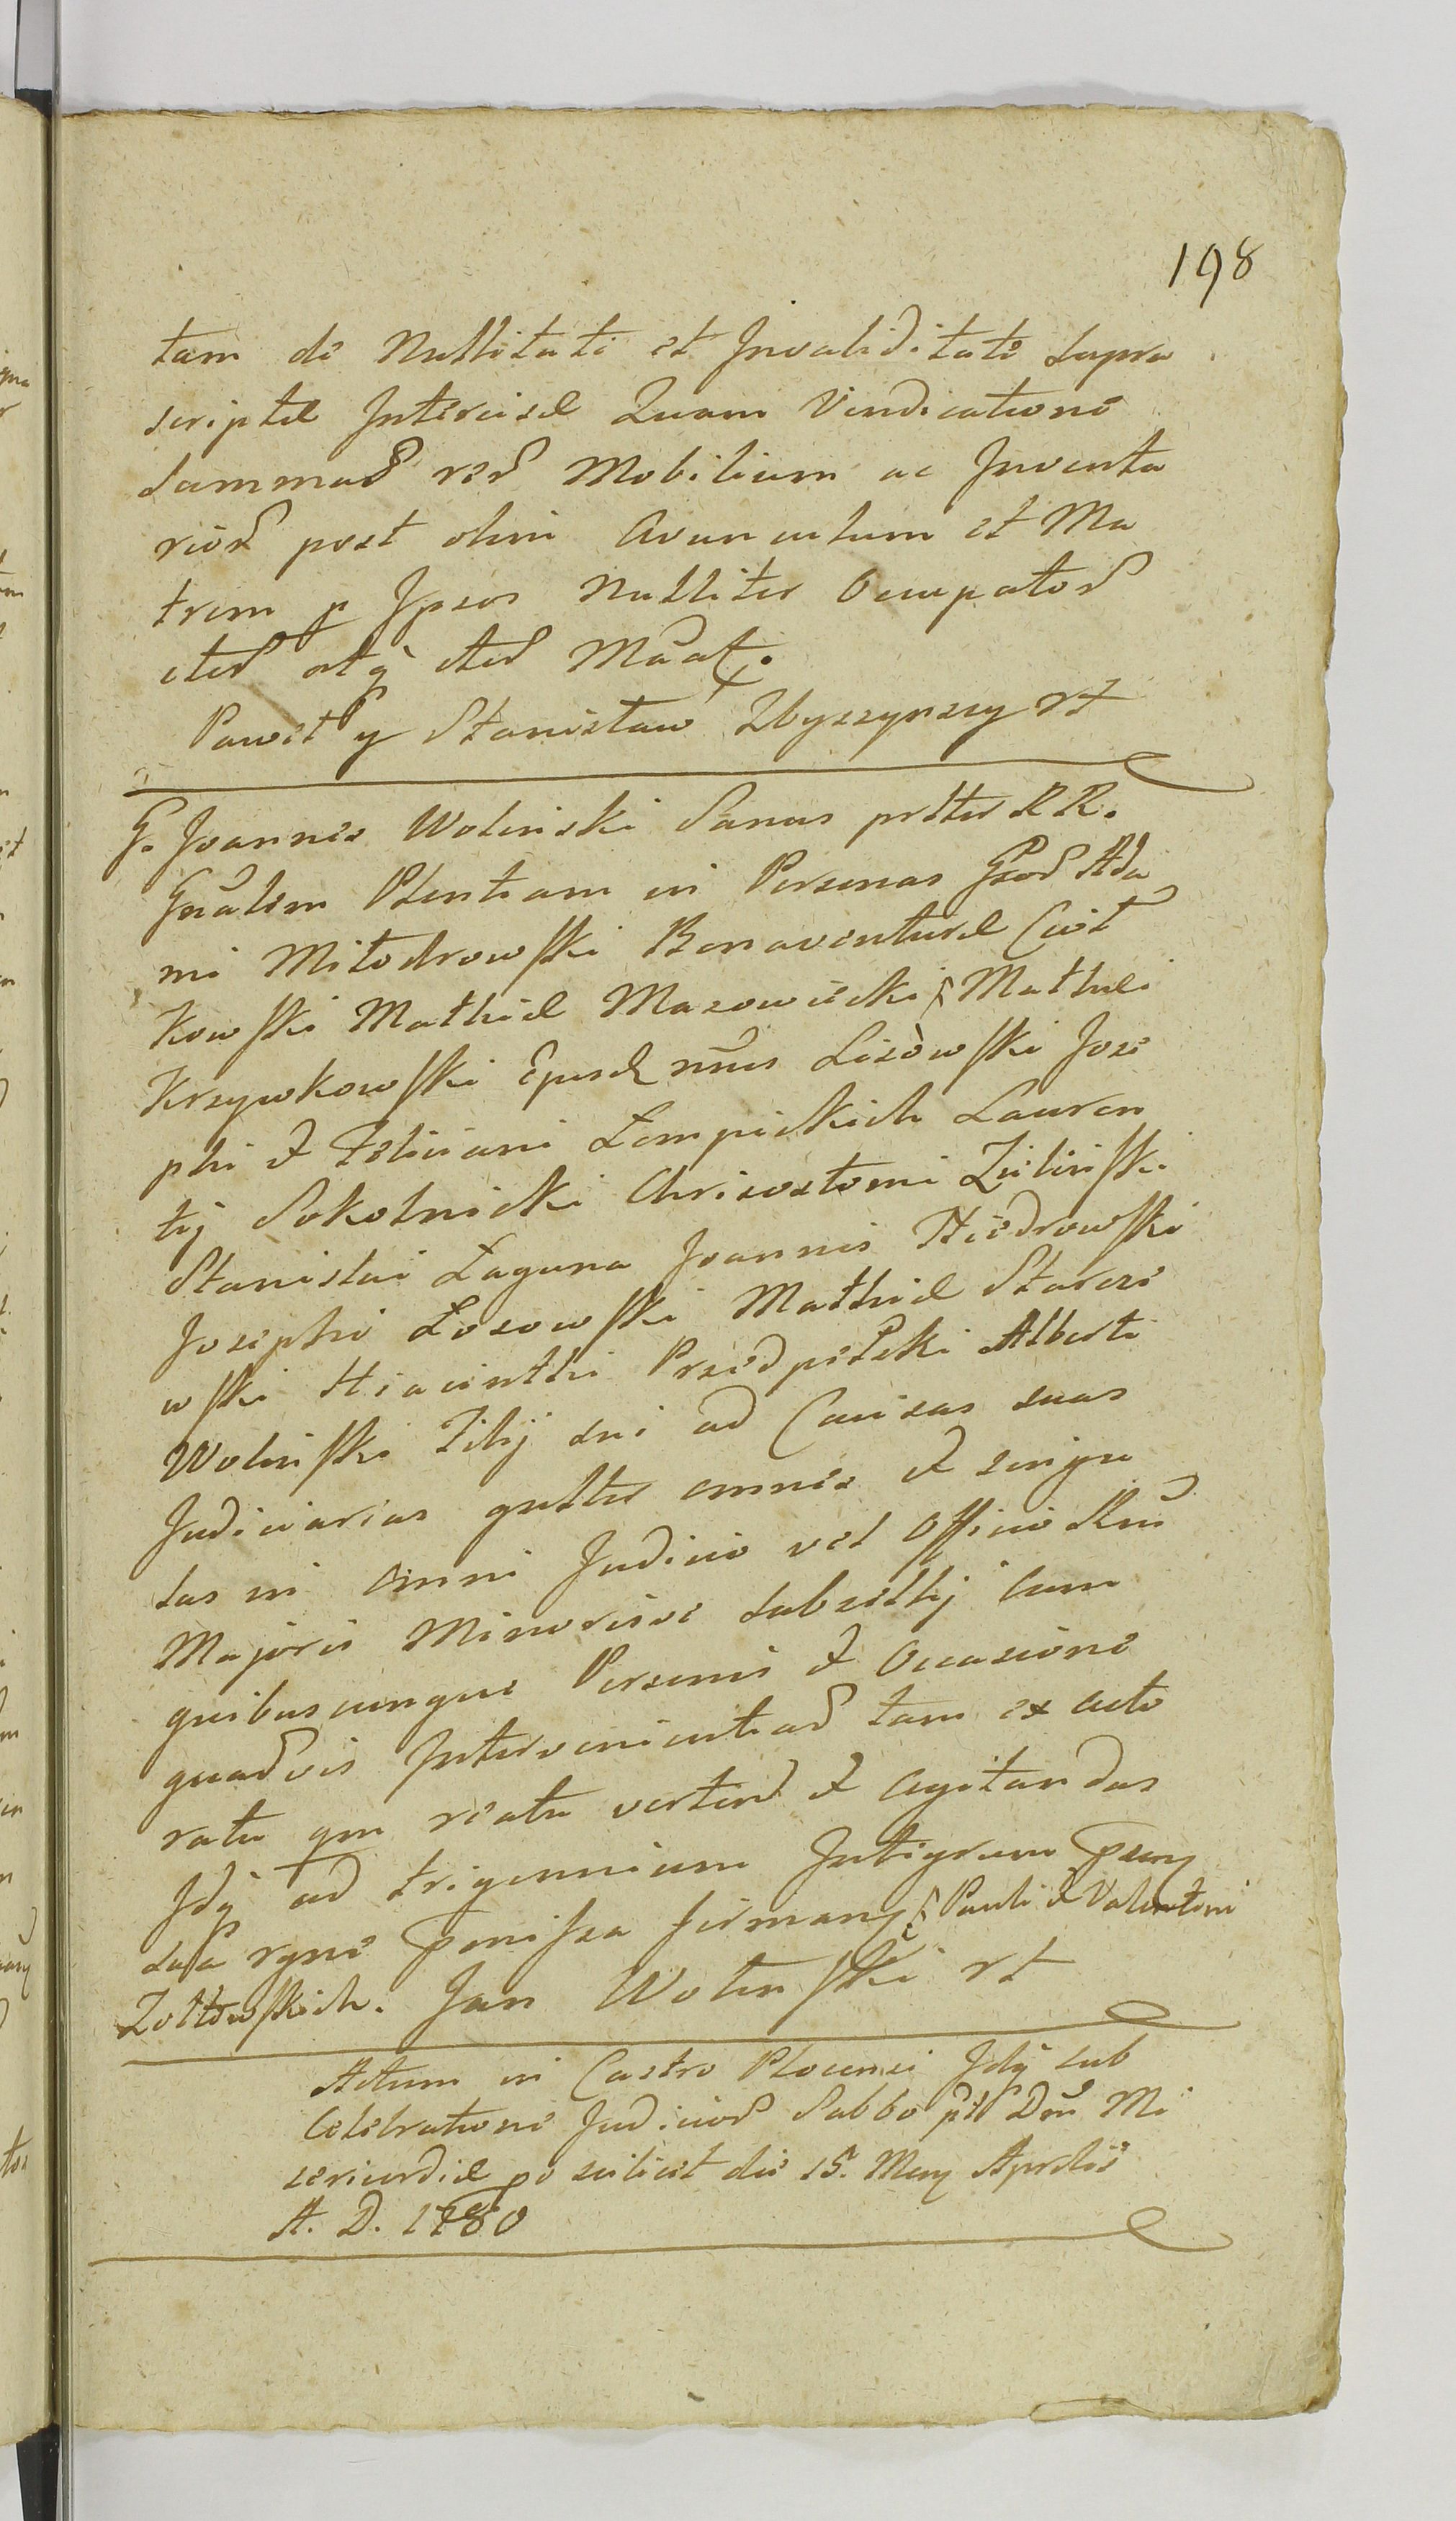 198
tam de Nullitate et Invaliditate supra
scriptæ Intercisæ Quam Vindicatione
Summar rer Mobilium ac Inventa
rior post olim Avunculum et Ma
trem p Ipsos Nulliter Occupator
eter atq eter Mãat.
Paweł y Stanisław Zbyszynscy rt
G. Joannes Wolinski Sanus prltter RR.
Gnãlem Plentiam in Personas Gsor Ada
mi Miłodrowski Bonaventuræ Cwit
kowski Mathiæ Mazowiecki Mathæi
Krzywkowski Ejusd nũs Lisowski Jose
phi & Feliciani Łempickich Lauren
tij Sokolnicki Chrisostomi Zielinski
Stanislai Łaguna Joannis Niedrowski
Josephi Łosowski Mathiæ Starcze
wski Hiacinthi Przedpełski Alberti
Wolinski Filij sui ad Causas suas
Judiciarias gnltter omnes & singu
las in omni Judicio vel Officio Rnĩ
Majoris Minorisve Subsellij cum
quibuscunque Personis & Occasione
quavis Intervenientiar tam ex acto
ratu qm reatu verten & agitandas
Idq ad trigennium Integrum
rgne Jan Wolinski rt
Pauli & Valentini
Zołtowskich.
Actum in Castro Plocensi Idq sub
Celebratione Judicior Sabbo pt Dnĩ Mi
sericordiæ po scilicet die 15. Mens Aprilis
A. D. 1780